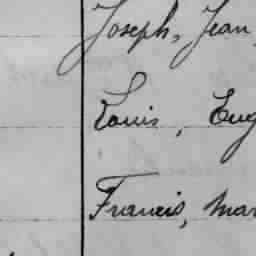 Joseph, Jean
Louis, Eug
Francis, Mar